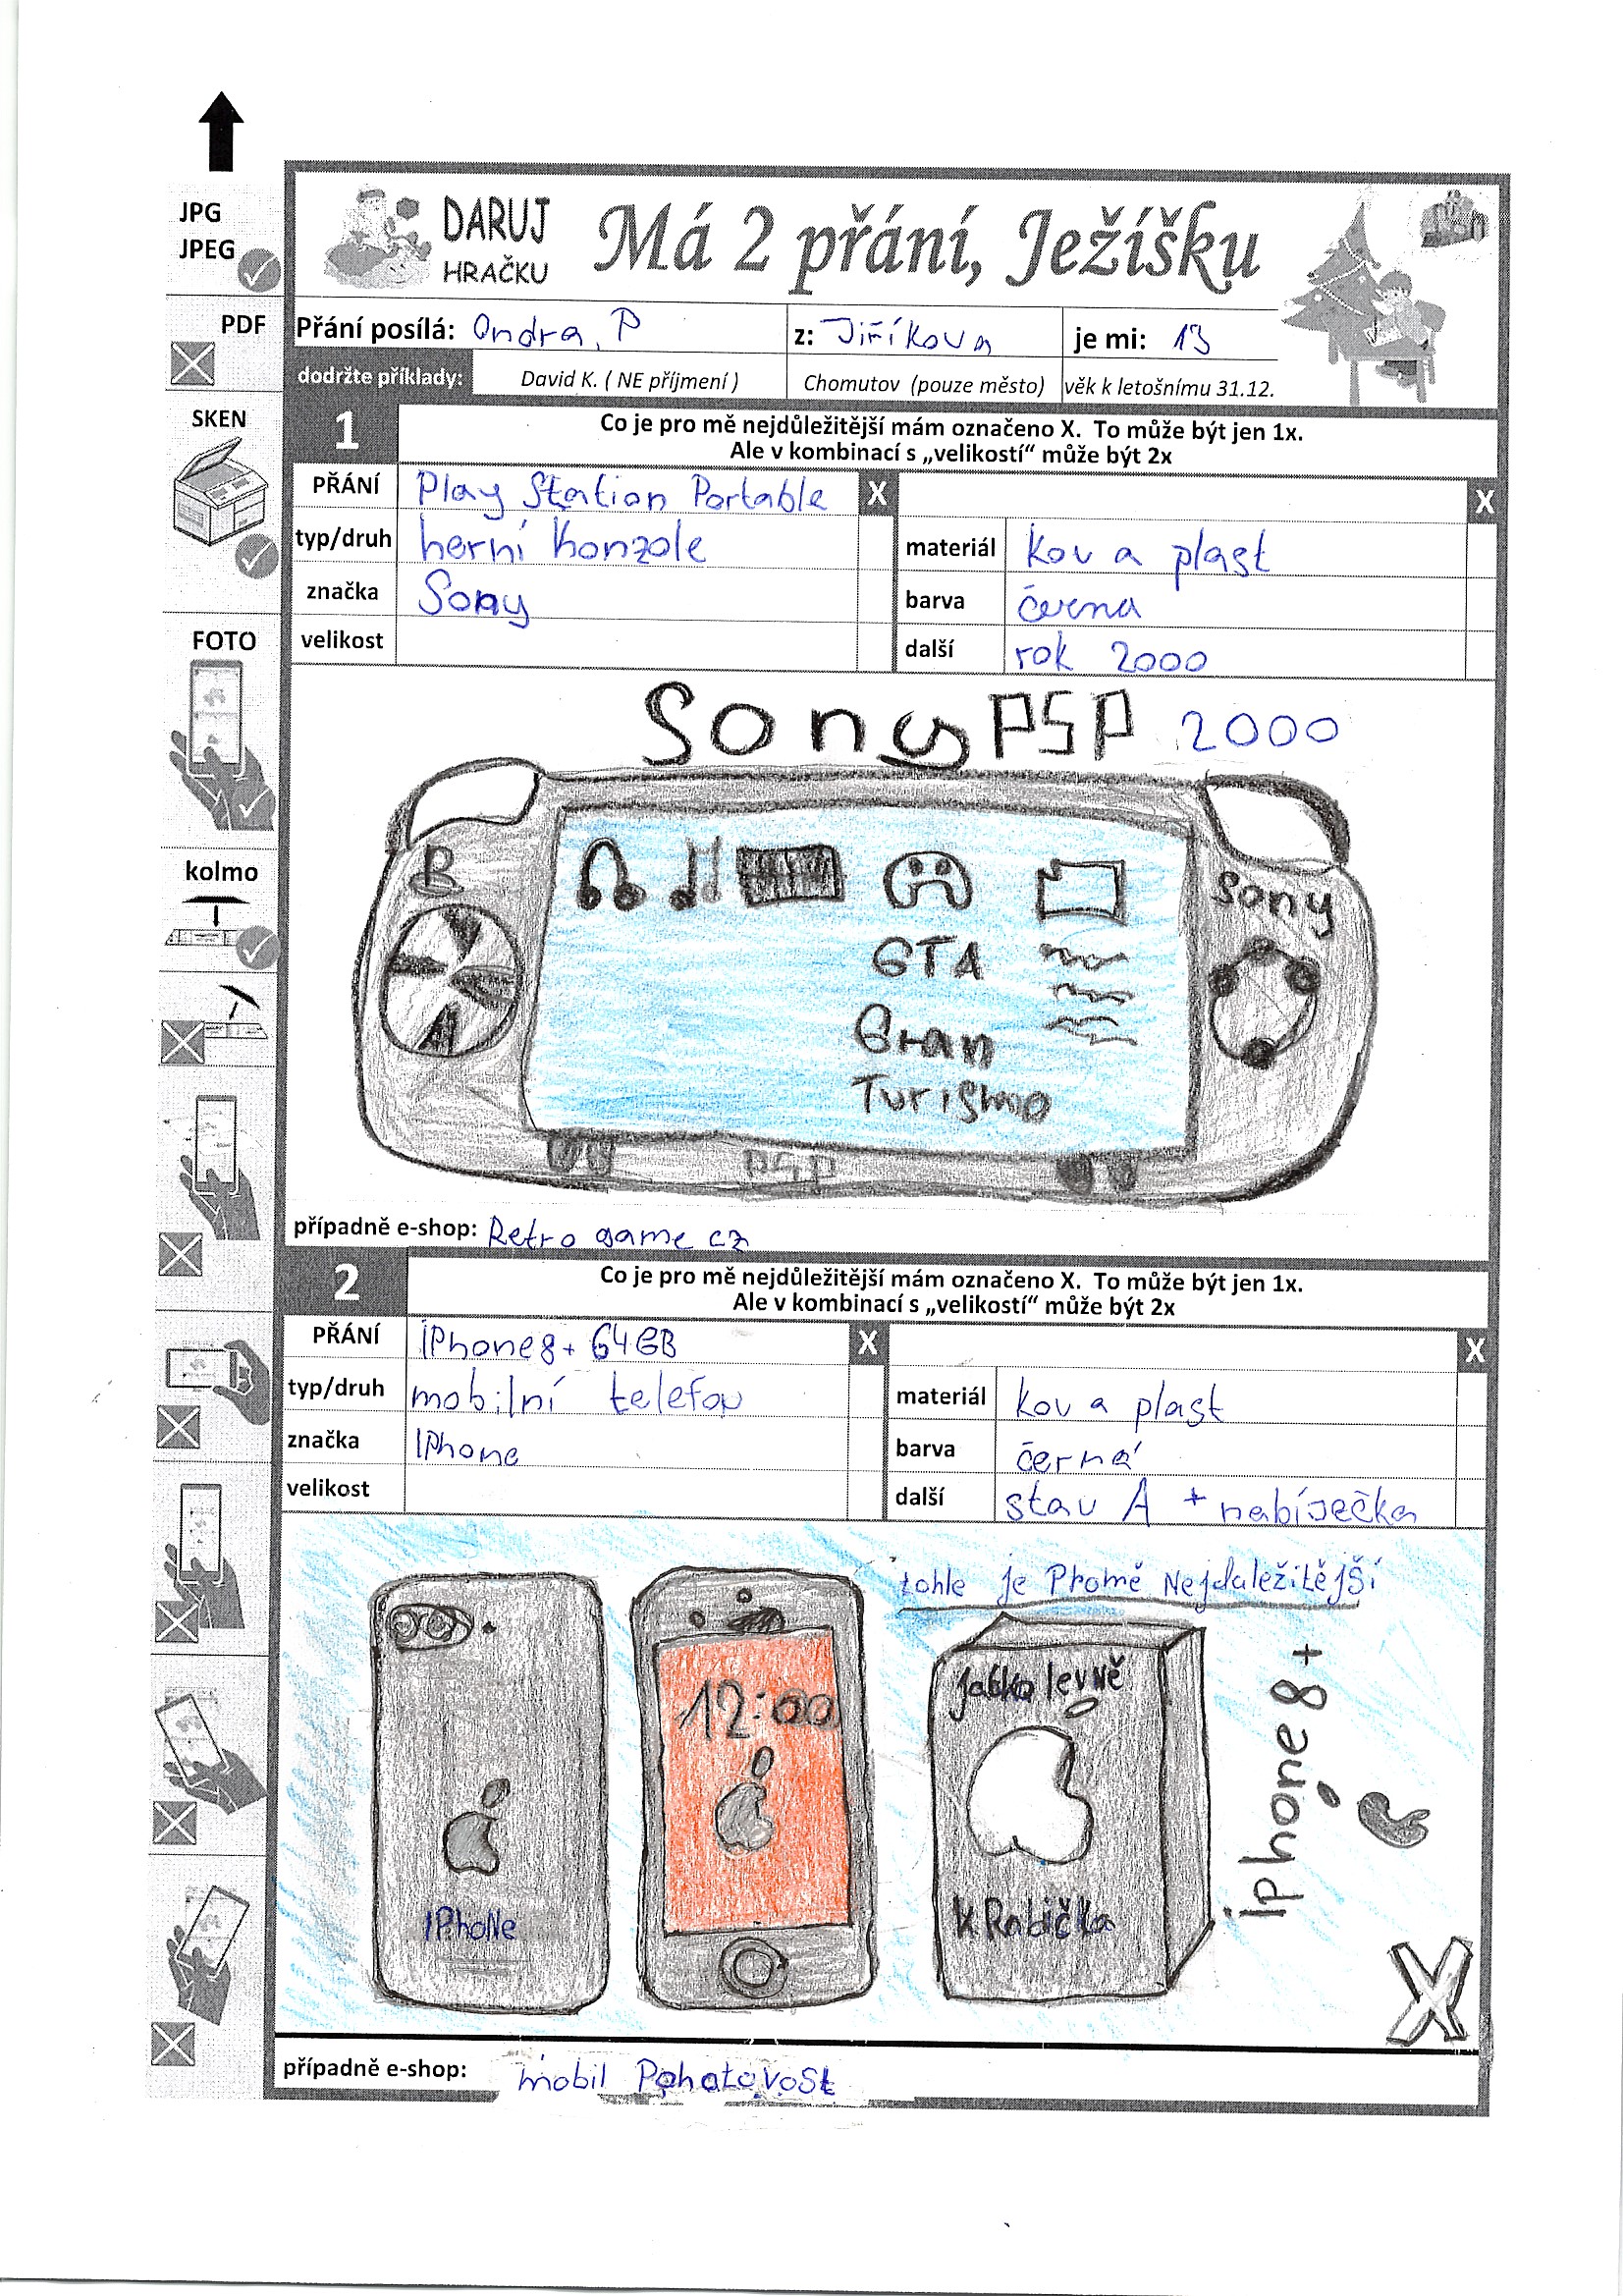 JPG
JPEG
PDF
SKEN
FOTO
kolmo
DARUJ
HRAČKU
Má 2 přání, Ježíšku
Přání posílá: Ondra. P z: Jiříkova je mi: 13
dodržte příklady: David K. ( NE příjmení ) Chomutov (pouze město) věk k letošnímu 31.12.
1 Co je pro mě nejdůležitější mám označeno X. To může být jen 1x.
Ale v kombinací s „velikostí“ může být 2x
PŘÁNÍ Play Station Portable X X
typ/druh herní konzole materiál kov a plast
značka Sony barva černa
velikost další rok 2000
Sony PSP 2000
R
Sony
GTA
Gran
Turismo
PSP
případně e-shop: Retro game cz
2 Co je pro mě nejdůležitější mám označeno X. To může být jen 1x.
Ale v kombinací s „velikostí“ může být 2x
PŘÁNÍ iPhone8+ 64GB X X
typ/druh mobilní telefon materiál kov a plast
značka IPhone barva černá
velikost další stav A + nabíječka
tohle je Promě Nejdaležitější
12:00
Jablko levně
IPhoNe
KRabička
iphone 8+
X
případně e-shop: mobil Pohotovost